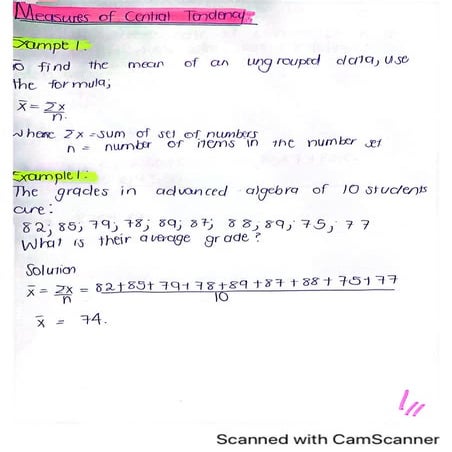 Measures of Central Tendency.
Exampt 1.
To find the mean of an ungrouped data, use
the formula;
x̄ = Σx
n.
Where Σx = sum of set of numbers
n = number of items in the number set
Example 1:
The grades in advanced algebra of 10 students
are:
82; 85; 79; 78; 89; 87; 88, 89, 75, 77
What is their average grade?
Solution
x̄ = Σx = 82+85+79+78+89+87+88+75+77
n 10
x̄ = 74.
Scanned with CamScanner